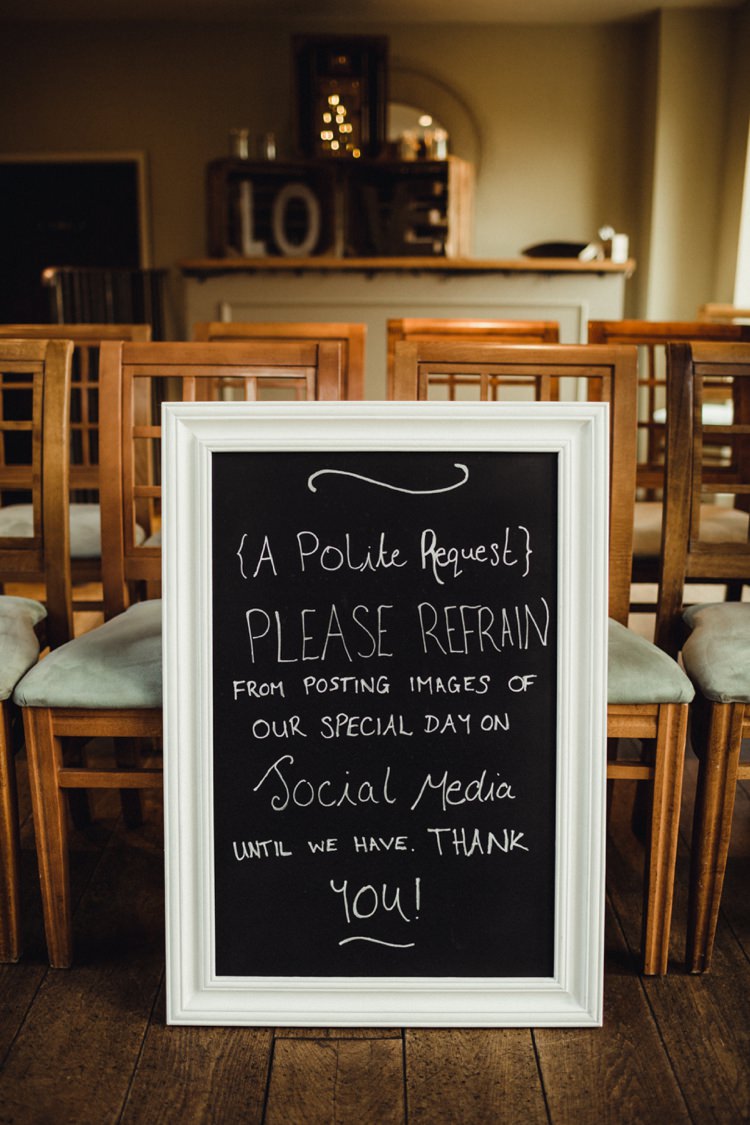 LOVE
{A Polite Request}
PLEASE REFRAIN
FROM POSTING IMAGES OF
OUR SPECIAL DAY ON
Social Media
UNTIL WE HAVE. THANK
YOU!